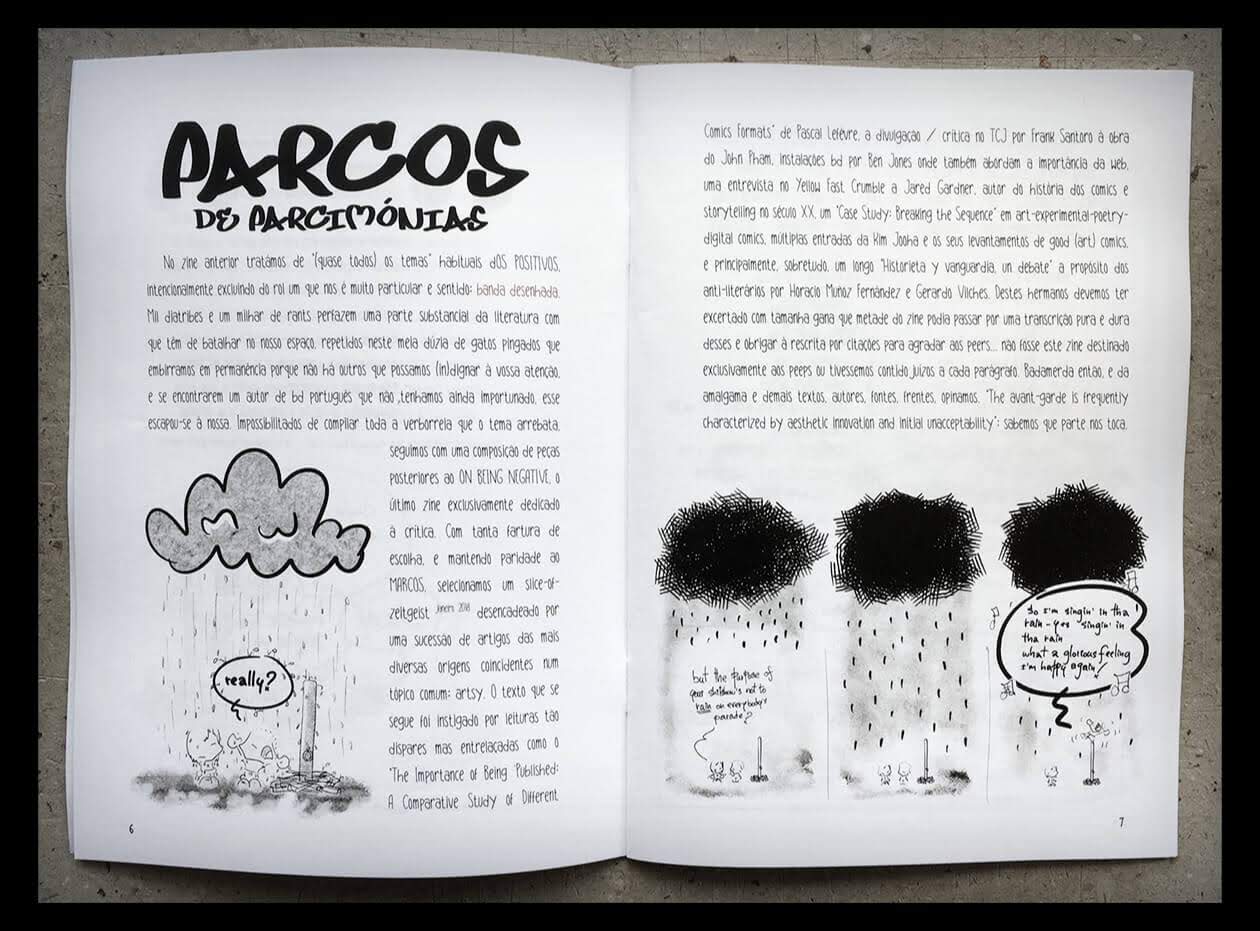 PARCOS
DE PARCIMÓNIAS
No zine anterior tratámos de "(quase todos) os temas" habituais dOS POSITIVOS,
intencionalmente excluindo do rol um que nos é muito particular e sentido: banda desenhada.
Mil diatribes e um milhar de rants perfazem uma parte substancial da literatura com
que têm de batalhar no nosso espaço, repetidos neste meia dúzia de gatos pingados que
embirramos em permanência porque não há outros que possamos (in)dignar à vossa atenção,
e se encontrarem um autor de bd português que não ,tenhamos ainda importunado, esse
escapou-se à nossa. Impossibilitados de compilar toda a verborreia que o tema arrebata,
seguimos com uma composição de peças
posteriores ao ON BEING NEGATIVE, o
último zine exclusivamente dedicado
à crítica. Com tanta fartura de
escolha, e mantendo paridade ao
MARCOS, selecionamos um slice-of-
zeitgeist Janeiro 2018 desencadeado por
uma sucessão de artigos das mais
diversas origens coincidentes num
tópico comum: artsy. O texto que se
segue foi instigado por leituras tão
díspares mas entrelaçadas como o
"The Importance of Being Published:
A Comparative Study of Different
really?
6
Comics Formats" de Pascal Lefèvre, a divulgação / crítica no TCJ por Frank Santoro à obra
do John Pham, instalações bd por Ben Jones onde também abordam a importância da web,
uma entrevista no Yellow Fast Crumble a Jared Gardner, autor do história dos comics e
storytelling no século XX, um "Case Study: Breaking the Sequence" em art-experimental-poetry-
digital comics, múltiplas entradas da Kim Jooha e os seus levantamentos de good (art) comics,
e principalmente, sobretudo, um longo "Historieta y vanguardia, un debate" a propósito dos
anti-literários por Horacio Muñoz Fernández e Gerardo Vilches. Destes hermanos devemos ter
excertado com tamanha gana que metade do zine podia passar por uma transcrição pura e dura
desses e obrigar à rescrita por citações para agradar aos peers... não fosse este zine destinado
exclusivamente aos peeps ou tivessemos contido juízos a cada parágrafo. Badamerda então, e da
amalgama e demais textos, autores, fontes, frentes, opinamos. "The avant-garde is frequently
characterized by aesthetic innovation and initial unacceptability": sabemos que parte nos toca.
but the purpose of
your shitshow's not to
rain on everybody's
parade?
so I'm singin' in tha
rain - yes singin' in
tha rain
what a glorious feeling
i'm happy again!
7